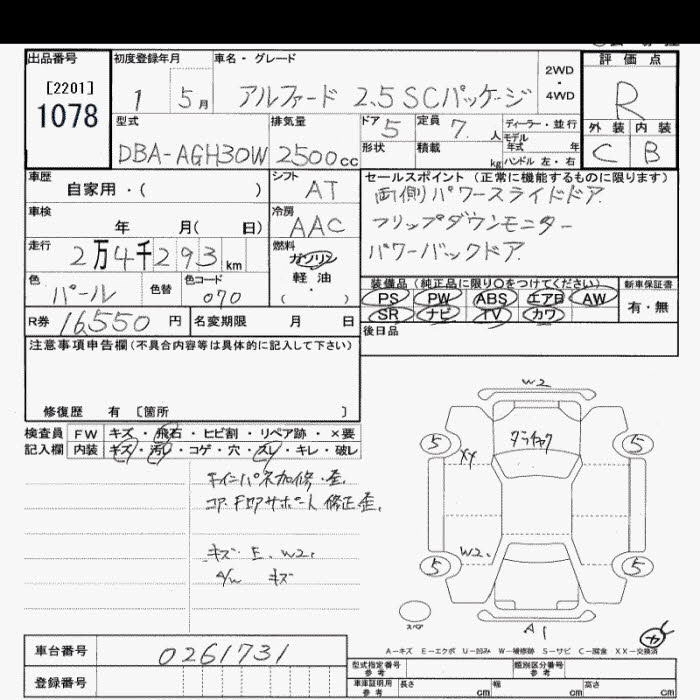 出品番号
[2201]
1078
初度登録年月
1 5月
車名・グレード
アルファード 2.5 SCパッケージ
2WD
・
4WD
評価点
R
外装 内装
C B
型式
DBA-AGH30W
排気量
2500cc
ドア
5
定員
7 人
ディーラー・並行
モデル
年式 年
形状
積載
kg
ハンドル 左・右
車歴
自家用・( )
シフト
AT
セールスポイント(正常に機能するものに限ります)
両側パワースライドドア
フリップダウンモニター
パワーバックドア
車検
年 月( 日)
冷房
AAC
走行
2万4千293km
燃料
ガソリン
軽油
( ・ )
色
パール
色替
色コード
070
装備品(純正品に限り○をつけてください)
新車保証書
PS PW ABS エアB AW
SR ナビ TV カワ
有・無
R券
16,550 円
名変期限 月 日
後日品
注意事項申告欄(不具合内容等は具体的に記入して下さい)
修復歴 有 [箇所 ]
検査員 FW キズ・飛石・ヒビ割・リペア跡・×要
記入欄 内装 キズ・汚レ・コゲ・穴・スレ・キレ・破レ
コア、Fロアサポート修正歪
キズ E、W2、
A/W キズ
W2
5 5
XX
W2、
5 5
スペア
A1
A－キズ E－エクボ U－凹み W－補修跡 S－サビ C－腐食 XX－交換済
車台番号
0261731
登録番号
型式指定番号
参考
類別区分番号
参考
車庫証明用
参考
長さ cm
幅 cm
高さ cm